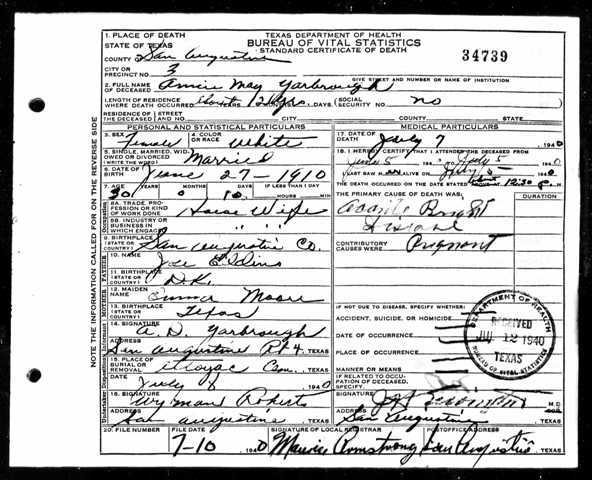 TEXAS DEPARTMENT OF HEALTH
BUREAU OF VITAL STATISTICS
STANDARD CERTIFICATE OF DEATH
34739
1. PLACE OF DEATH
STATE OF TEXAS
COUNTY OF San Augustine
CITY OR PRECINCT NO. 3
GIVE STREET AND NUMBER OR NAME OF INSTITUTION
2. FULL NAME OF DECEASED May Yarbrough
LENGTH OF RESIDENCE WHERE DEATH OCCURRED YRS. DAYS (SOCIAL SECURITY NO. no
RESIDENCE OF THE DECEASED (STREET NO. CITY COUNTY STATE
PERSONAL AND STATISTICAL PARTICULARS
3. SEX Female
4. COLOR OR RACE White
5. SINGLE, MARRIED, WIDOWED OR DIVORCED (WRITE THE WORD) Married
6. DATE OF BIRTH June 27-1910
7. AGE 30 YEARS 0 MONTHS 10 DAYS IF LESS THAN 1 DAY
8A. TRADE, PROFESSION OR KIND OF WORK DONE House Wife
8B. INDUSTRY OR BUSINESS IN WHICH ENGAGED " " "
9. BIRTHPLACE (STATE OR COUNTRY) San Augustine Co.
FATHER
10. NAME Joe
11. BIRTHPLACE (STATE OR COUNTRY) D.K.
MOTHER
12. MAIDEN NAME Emma Moore
13. BIRTHPLACE (STATE OR COUNTRY) Texas
14. SIGNATURE A. D. Yarbrough
ADDRESS San Augustine Rt 4. TEXAS
15. PLACE OF BURIAL OR REMOVAL Cem. TEXAS
DATE July 8 1940
16. SIGNATURE Wyman Roberts
ADDRESS San Augustine TEXAS
MEDICAL PARTICULARS
17. DATE OF DEATH July 7 1940
18. I HEREBY CERTIFY THAT I ATTENDED THE DECEASED FROM June 5 TO July 5 1940
I LAST SAW H ALIVE ON July 5 1940
THE DEATH OCCURRED ON THE DATE STATED 12:30 P. M.
THE PRIMARY CAUSE OF DEATH WAS: DURATION
Bright
Disease
CONTRIBUTORY CAUSES WERE: Pregnant
IF NOT DUE TO DISEASE, SPECIFY:
ACCIDENT, SUICIDE, OR HOMICIDE
DATE OF OCCURRENCE
PLACE OF OCCURRENCE
MANNER OR MEANS
IF RELATED TO OCCUPATION OF DECEASED, SPECIFY.
SIGNATURE M.D.
ADDRESS San Augustine TEXAS
DEPARTMENT OF HEALTH
RECEIVED
JUL 12 1940
TEXAS
BUREAU OF VITAL STATISTICS
20. FILE NUMBER
FILE DATE 7-10 1940
SIGNATURE OF LOCAL REGISTRAR Maurice Armstrong
POSTOFFICE ADDRESS San Augustine
NOTE THE INFORMATION CALLED FOR ON THE REVERSE SIDE